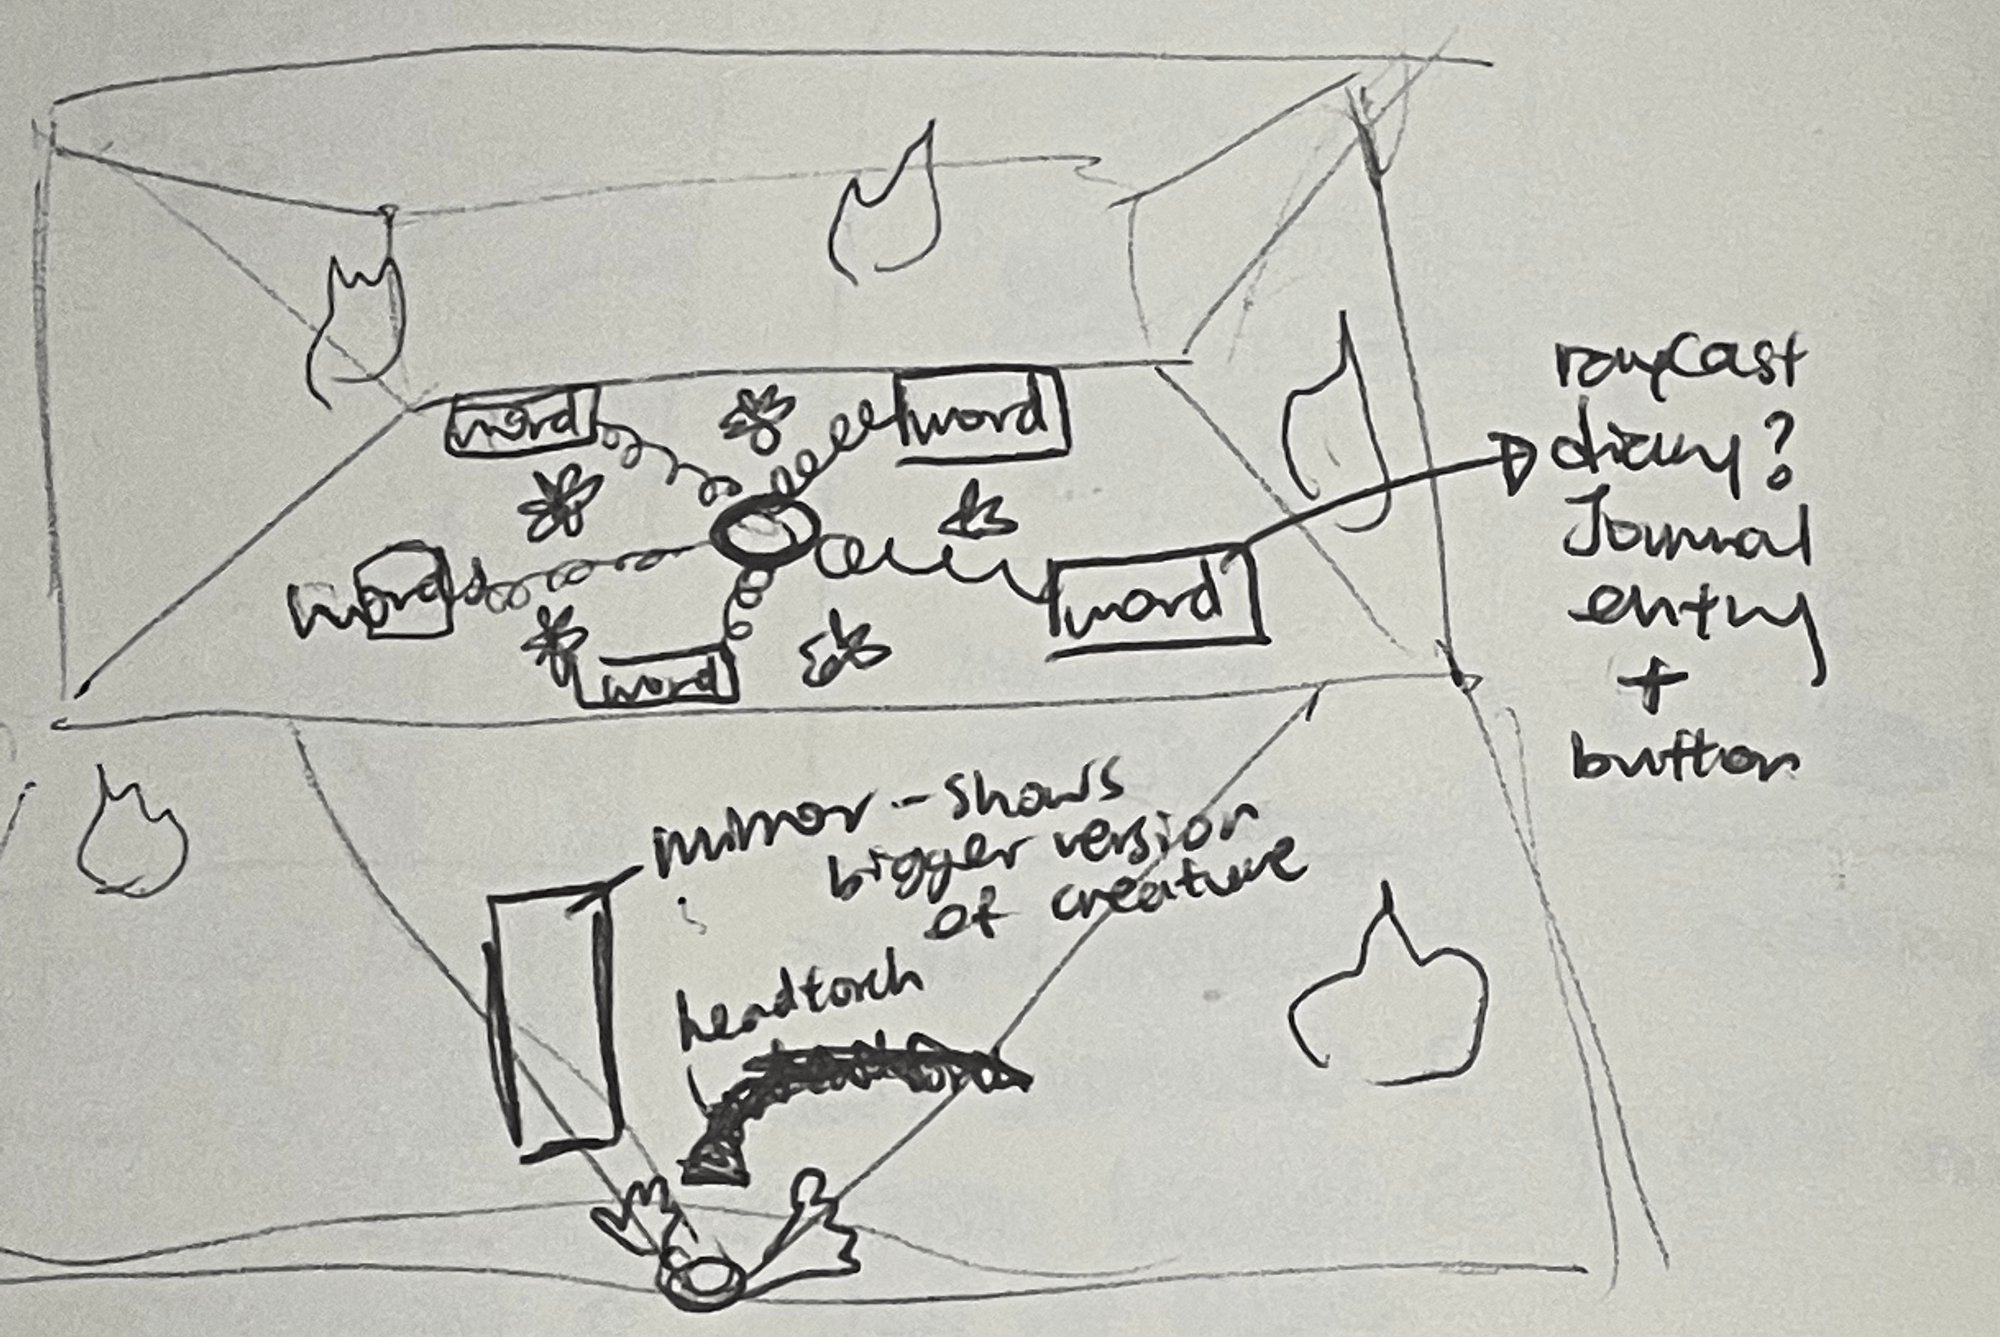 word
word
word
word
word
raycast
diary?
Journal
entry
+
button
mirror - shows
bigger version
of creature
headtorch